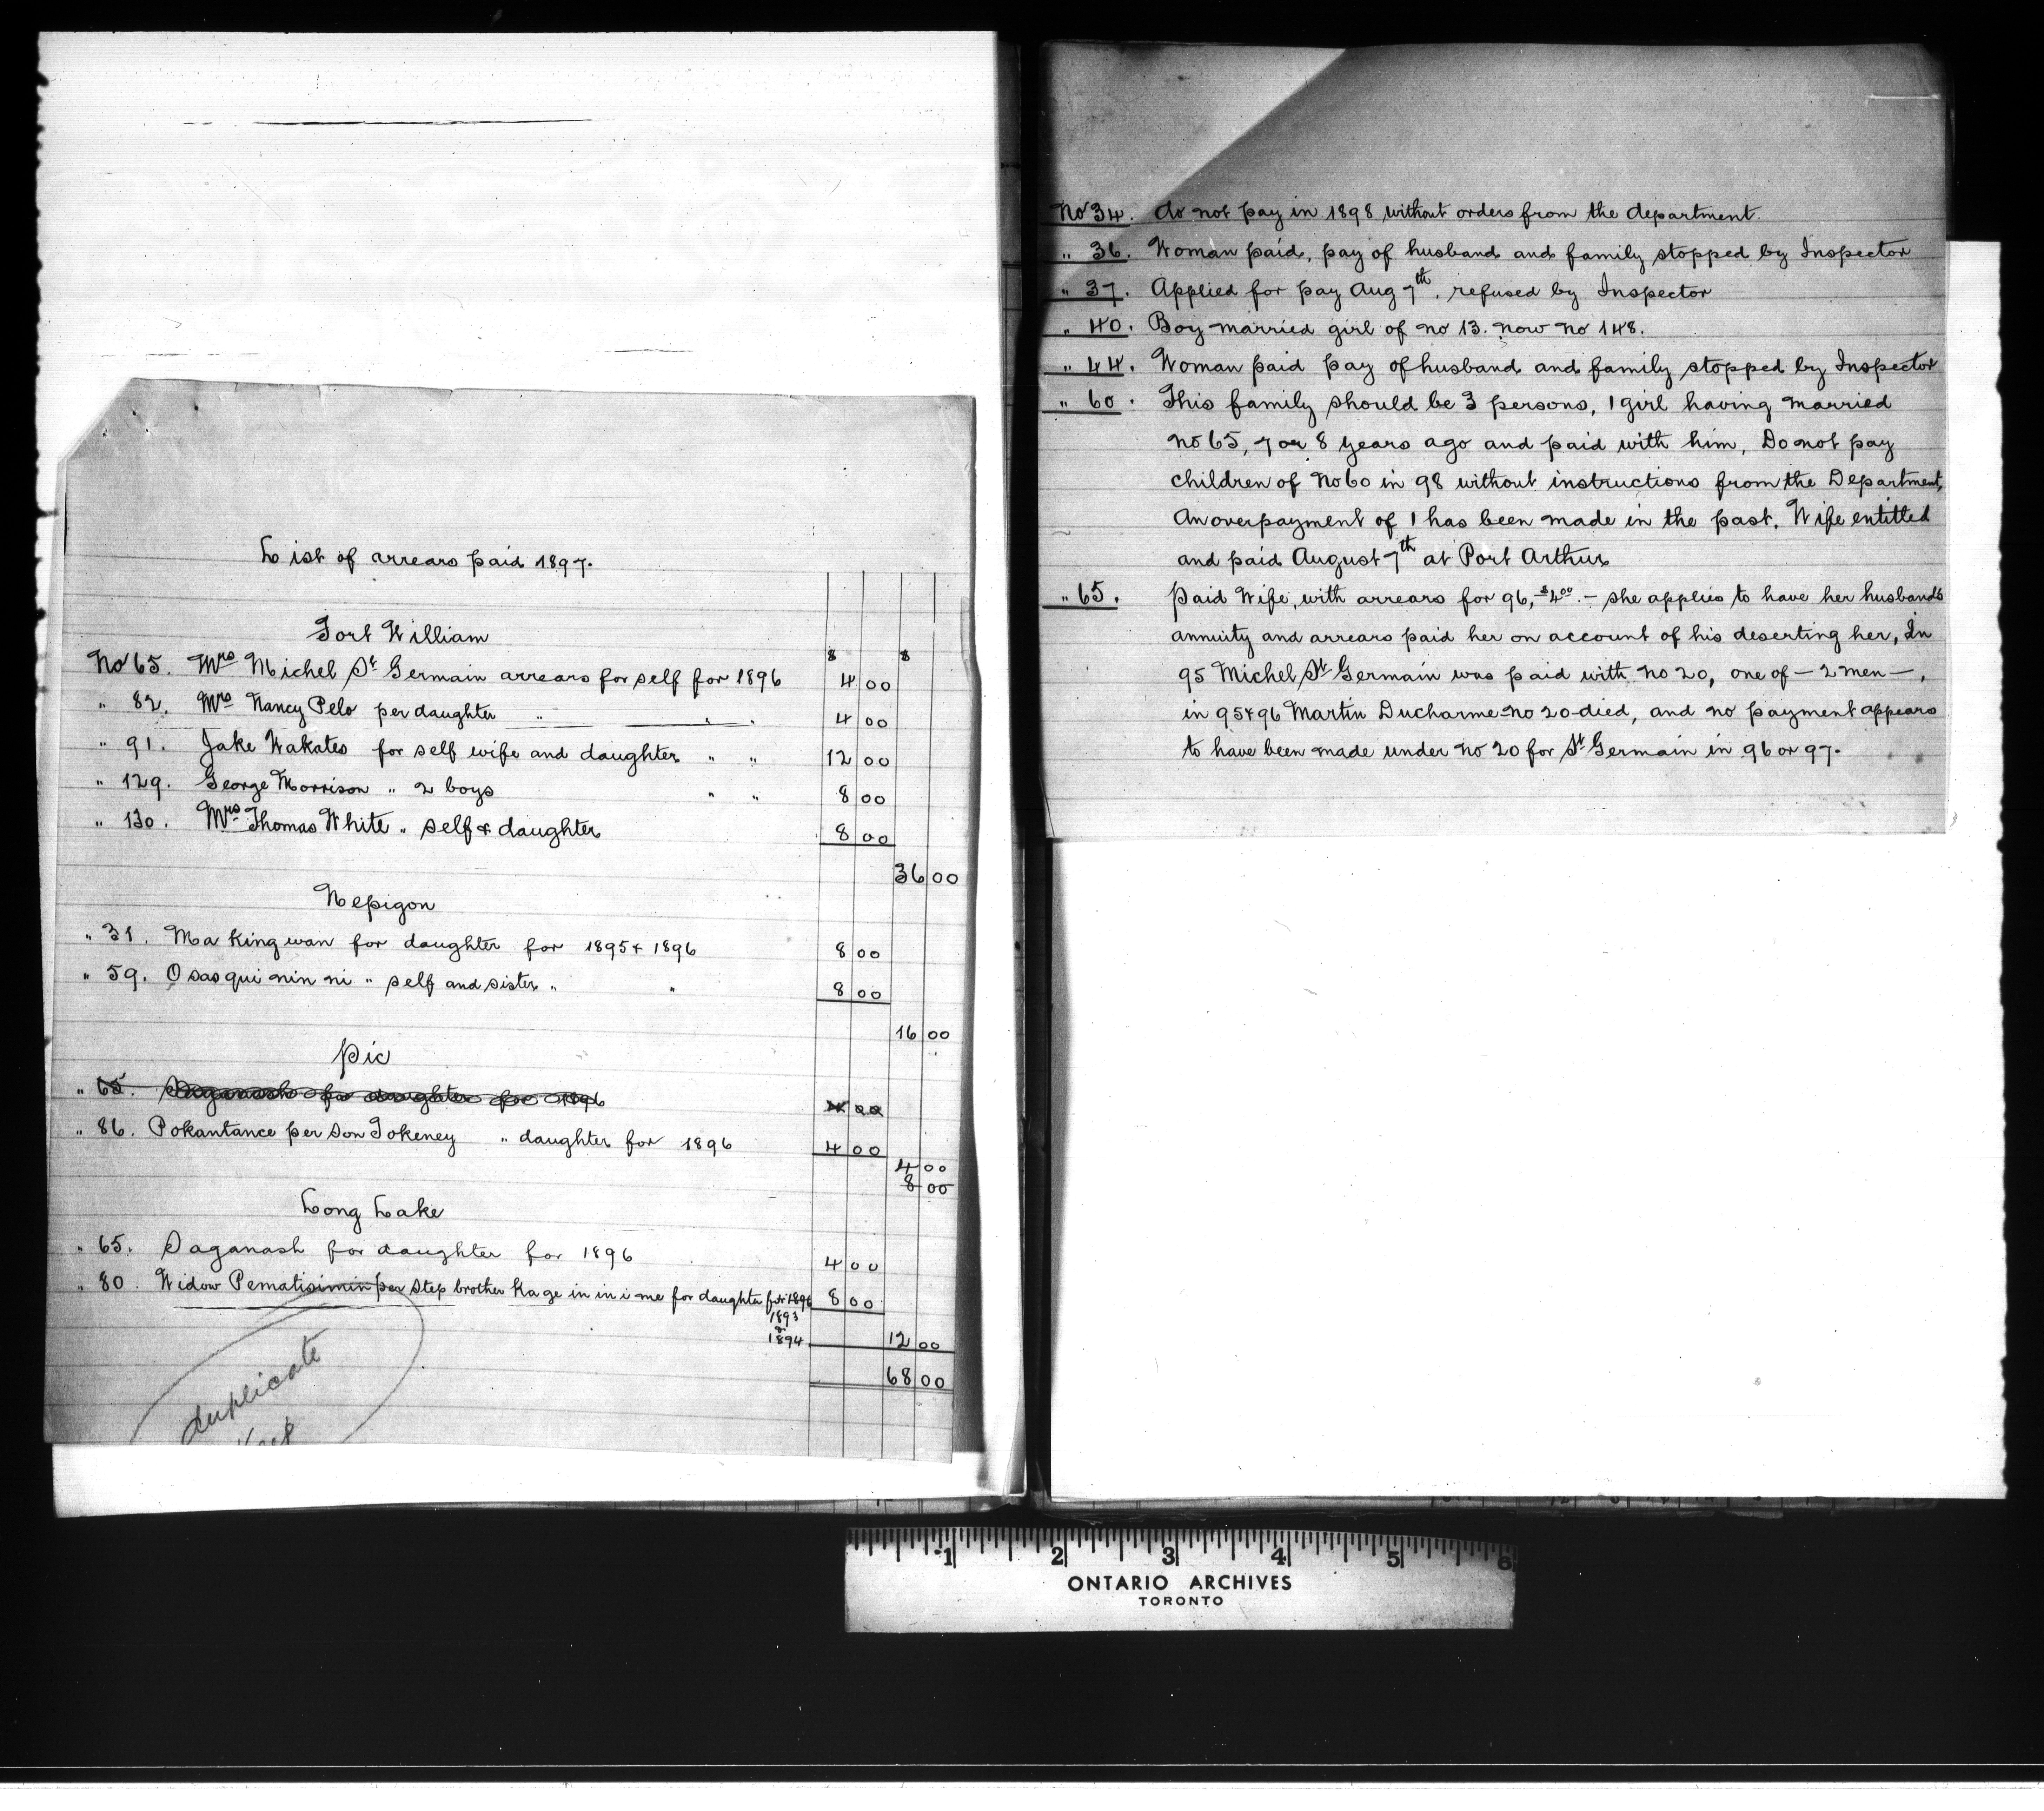 List of arrears paid 1897.
Fort William
$ $
No 65. Mrs Michel St Germain arrears for self for 1896 4 00
" 82. Mrs Nancy Pelo per daughter " " " 4 00
" 91. Jake Wakates for self wife and daughter " " 12 00
" 129. George Morrison " 2 boys " " 8 00
" 130. Mrs Thomas White " self & daughter 8 00
36 00
Nepigon
" 31. Ma king wan for daughter for 1895 & 1896 8 00
" 59. Osasqui nin ni " self and sister " " 8 00
16 00
Pic
" 65. Saganash for daughter for 1896 4 00
" 86. Pokantance per Son Tokeney " daughter for 1896 4 00
4 00
8 00
Long Lake
" 65. Saganash for daughter for 1896 4 00
" 80. Widow Pematisimin per Step brother Kage in in i me for daughter for 1896 8 00
1893
&
1894 12 00
68 00
duplicate
No 34. do not pay in 1898 without orders from the department.
" 36. Woman paid, pay of husband and family stopped by Inspector
" 37. Applied for pay Aug 7th, refused by Inspector
" 40. Boy married girl of no 13. now no 148.
" 44. Woman paid pay of husband and family stopped by Inspector
" 60. This family should be 3 persons, 1 girl having married
no 65, 7 or 8 years ago and paid with him, Do not pay
children of No 60 in 98 without instructions from the Department,
An overpayment of 1 has been made in the past. Wife entitled
and paid August 7th at Port Arthur
" 65. Paid Wife, with arrears for 96, $4.00. - she applies to have her husbands
annuity and arrears paid her on account of his deserting her, In
95 Michel St Germain was paid with no 20, one of - 2 men -,
in 95 & 96 Martin Ducharme - no 20 - died, and no payment appears
to have been made under no 20 for St Germain in 96 or 97.
1 2 3 4 5 6
ONTARIO ARCHIVES
TORONTO